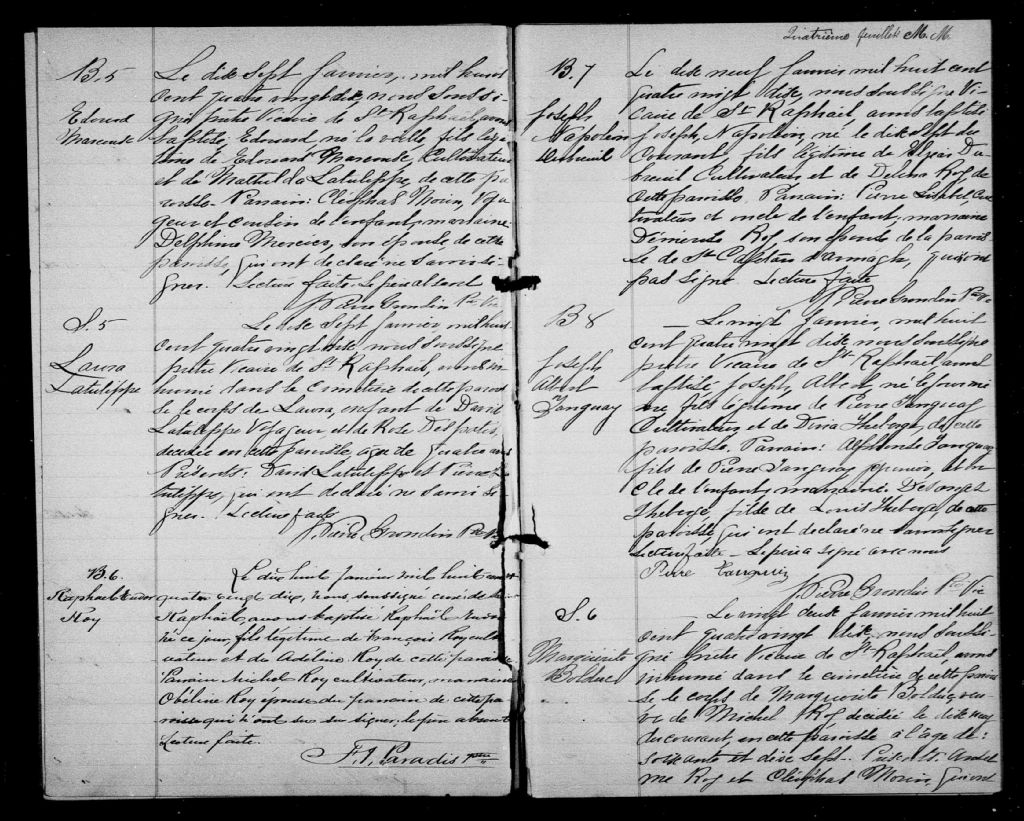 B. 5
Edouard
Marcoux
Le dix sept Janvier, mil huit
cent quatre vingt dix, nous soussi-
gné prêtre Vicaire de St Raphaël, avons
baptisé, Edouard, né la veille, fils légi-
time de Edouard Marcoux, Cultivateur
et de Mathilda Latulippe, de cette pa-
roisse. Parrain: Cléophas Morin, Voya-
geur et cousin de l'enfant, marraine
Delphine Mercier, son épouse de cette
paroisse, qui ont déclaré ne savoir si-
gner. Lecture faite. Le père absent
J. Pierre Grondin Ptre Vic
S. 5
Laura
Latulippe
Le dix Sept Janvier, mil huit
cent quatre vingt dix, nous soussigné
prêtre Vicaire de St Raphaël, avons in-
humé dans le cimetière de cette parois-
se le corps de Laura, enfant de David
Latulippe Voyageur, et de Rose
décédée en cette paroisse, agée de quatre ans
Présents: David Latulippe et Pierre La-
tulippe, qui ont déclaré ne savoir si-
gner. Lecture faite
J. Pierre Grondin Ptre Vic
B. 6.
Raphaël
Roy
Le dix huit Janvier mil huit cent
quatre vingt dix, nous soussigné curé de St
Raphaël, avons baptisé Raphaël
né ce jour, fils légitime de François Roy culti-
vateur et de Adéline Roy de cette paroisse
Parrain Michel Roy cultivateur, marraine
Obéline Roy épouse du parrain de cette pa-
roisse qui n'ont su signer, le père absent
Lecture faite.
F. J. Paradis ptre
Quatrième feuillet M. M.
B. 7
Joseph
Napoléon
Dubreuil
Le dix neuf Janvier mil huit cent
quatre vingt dix, nous soussigné Vi-
caire de St Raphaël, avons baptisé
Joseph, Napoléon, né le dix sept du
courant, fils légitime de Elzéar Du-
breuil Cultivateur et de Delima Roy de
cette paroisse. Parrain: Pierre Cul-
tivateur et oncle de l'enfant, marraine
Roy son épouse de la parois-
se de St Cajétan d'Armagh, qui ont
pas signé. Lecture faite
J. Pierre Grondin Ptre Vic
B 8
Joseph
Albert
Tanguay
Le vingt Janvier, mil huit
cent quatre vingt dix, nous soussigné
prêtre Vicaire de St Raphaël avons
baptisé Joseph, Albert, né le jour mê-
me, fils légitime de Pierre Tanguay
Cultivateur et de Dina Theberge, de cette
paroisse. Parrain: Alphonse Tanguay
fils de Pierre Tanguay, et on-
cle de l'enfant, marraine: Desanges
Theberge, fille de Louis Theberge, de cette
paroisse, qui ont déclaré ne savoir signer
Lecture faite - Le père a signé avec nous
Pierre Tanguay
J. Pierre Grondin Ptre Vic
S. 6
Marguerite
Bolduc
Le vingt deux Janvier mil huit
cent quatre vingt dix, nous soussi-
gné prêtre Vicaire de St Raphaël, avons
inhumé dans le cimetière de cette parois-
se le corps de Marguerite Bolduc, veu-
ve de Michel Roy décédée le dix neuf
du courant, en cette paroisse à l'age de:
soixante et dix sept. Présents: Ansel-
me Roy et Cléophas Morin, qui ont